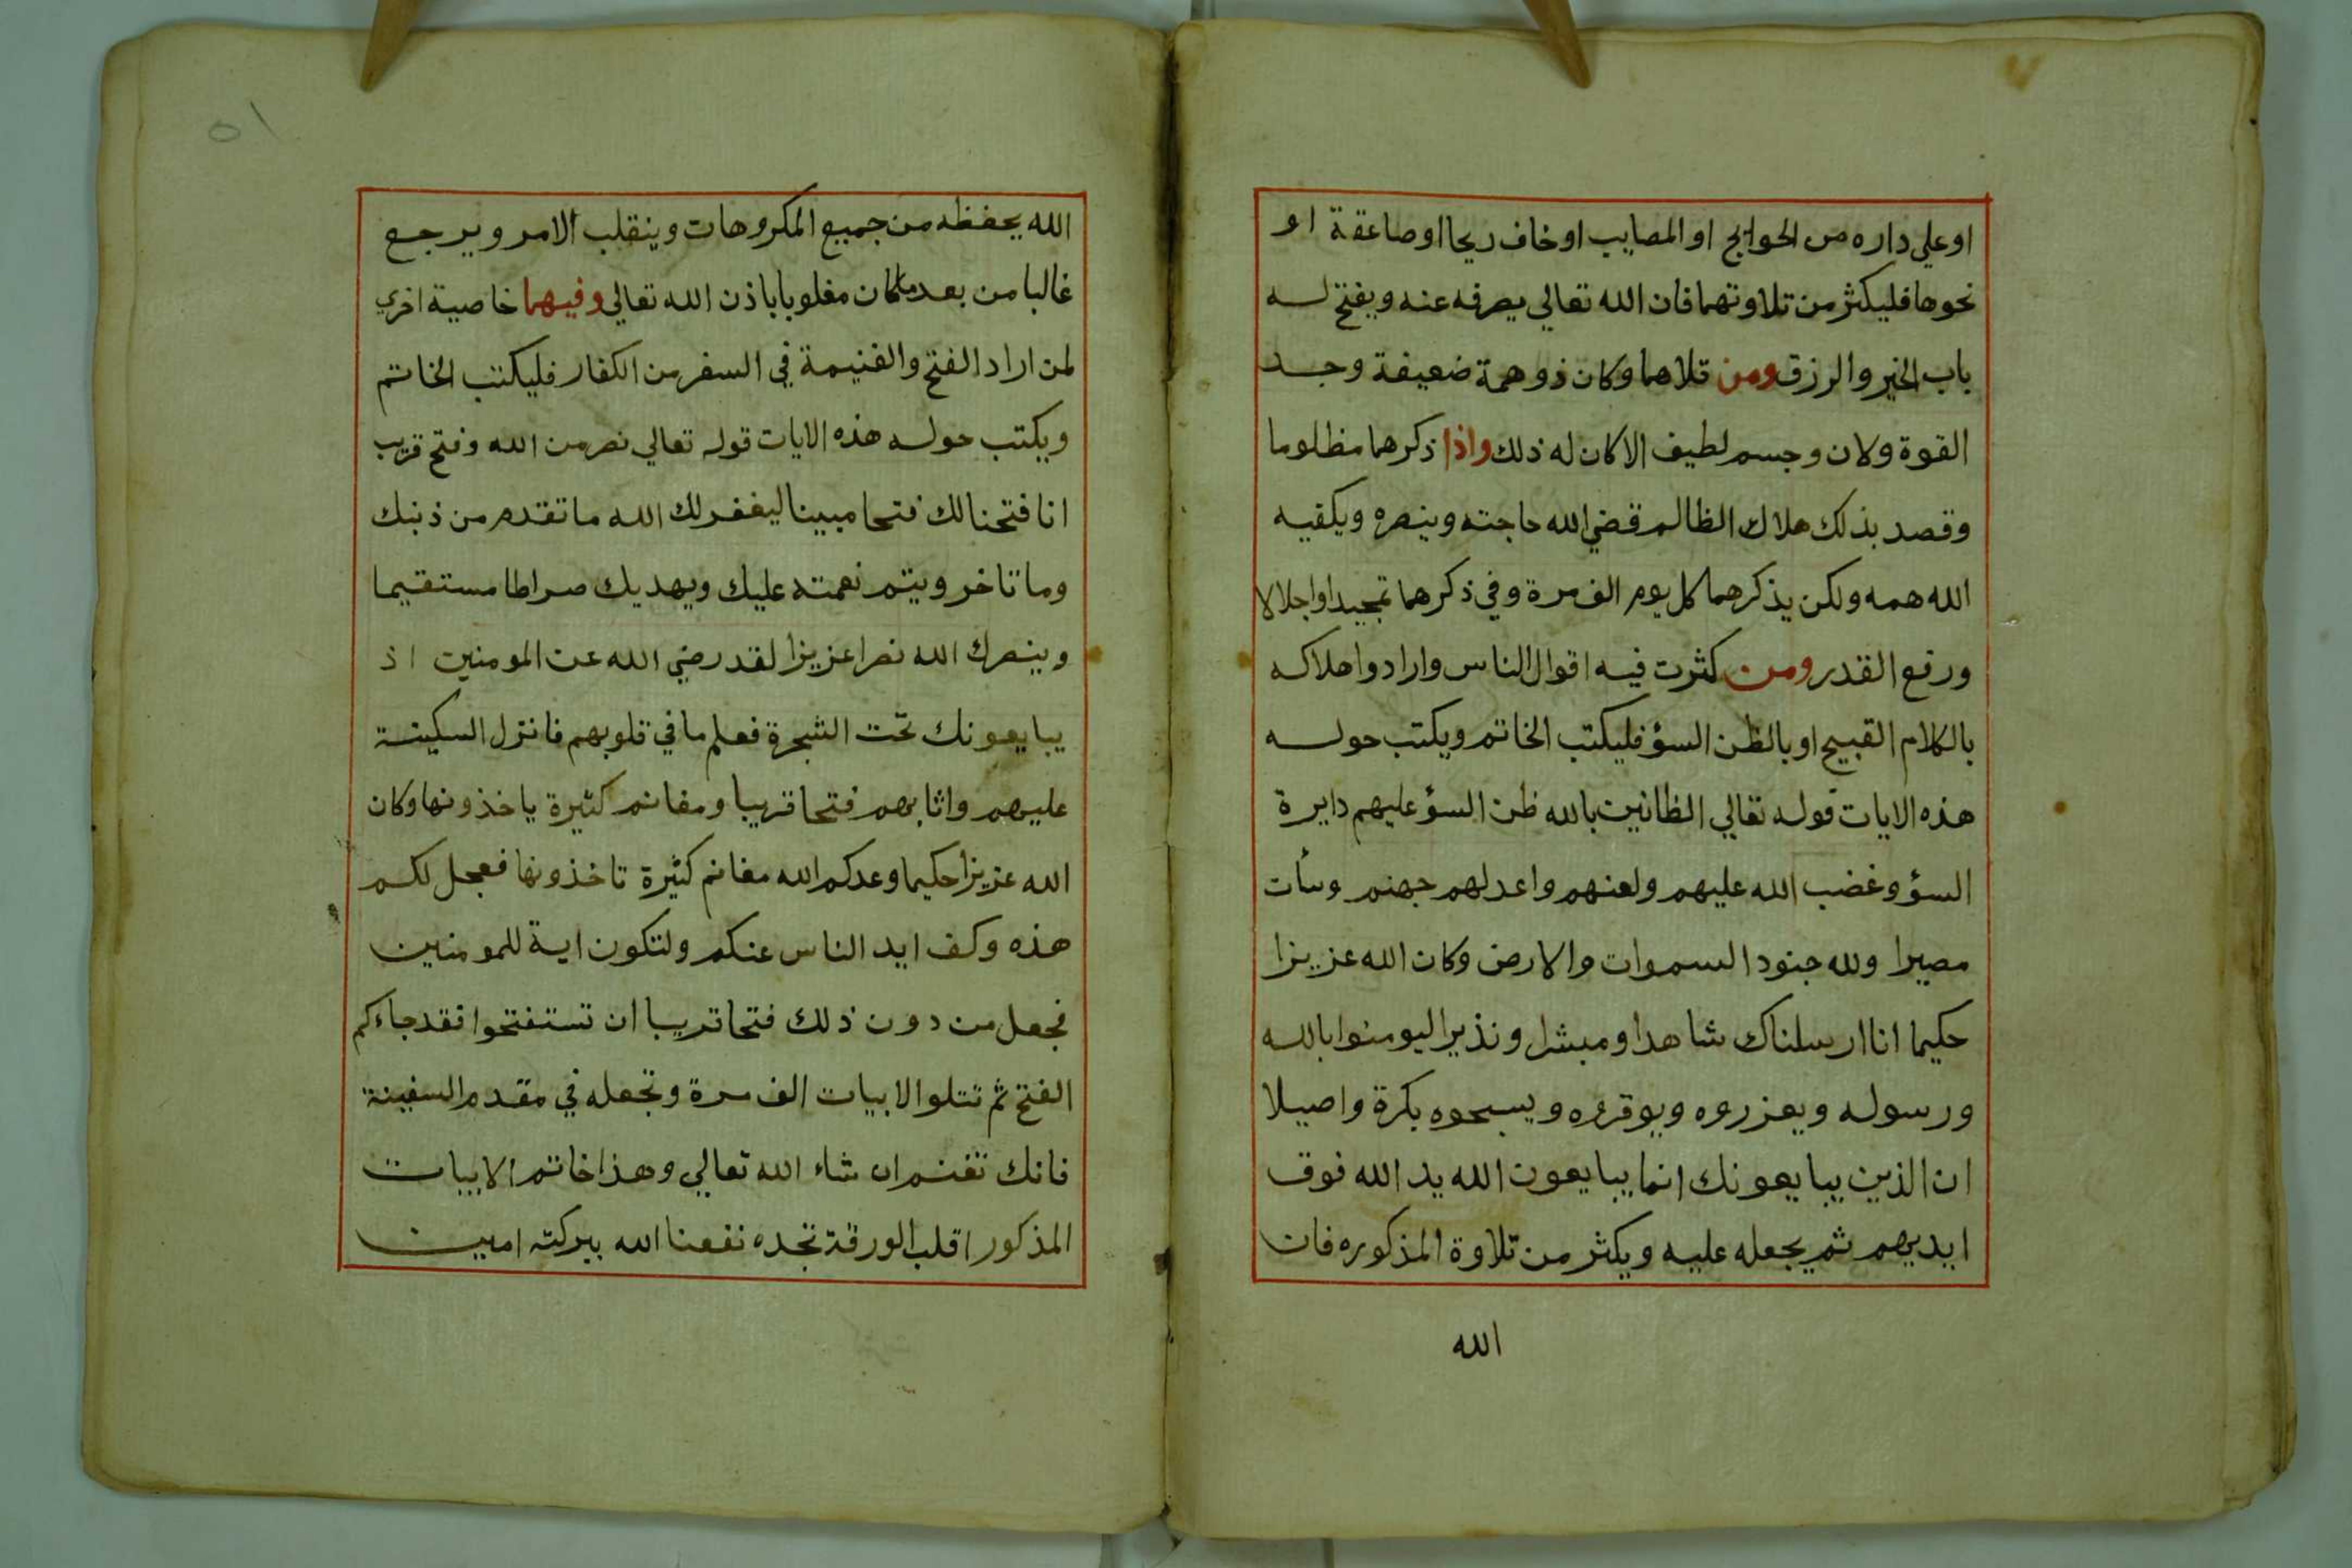 او علي داره من الحوايج او المصايب او خاف ريحا او صاعقة او
نحوها فليكثر من تلاوتهما فان الله تعالي يصرفه عنه ويفتح له
باب الخير والرزق ومن تلاهما وكان ذو همة ضعيفة وجد
القوة ولان وجسم لطيف الا كان له ذلك واذا ذكرهما مظلوما
وقصد بذلك هلاك الظالم قضي الله حاجته وينصره ويكفيه
الله همه ولكن يذكرهما كل يوم الف مرة وفي ذكرهما تمجيدا واجلالا
ورفع القدر ومن كثرت فيه اقوال الناس وارادوا هلاكه
بالكلام القبيح او بالظن السؤ فليكتب الخاتم ويكتب حوله
هذه الايات قوله تعالي الظانين بالله ظن السؤ عليهم دايرة
السؤ وغضب الله عليهم ولعنهم واعد لهم جهنم وسأت
مصيرا ولله جنود السموات والارض وكان الله عزيزا
حكيما انا ارسلناك شاهدا ومبشرا ونذيرا ليومنوا بالله
ورسوله ويعزروه ويوقروه ويسبحوه بكرة واصيلا
ان الذين يبايعونك انما يبايعون الله يد الله فوق
ايديهم ثم يجعله عليه ويكثر من تلاوة المذكوره فان
الله
٥١
الله يحفظه من جميع المكروهات وينقلب الامر ويرجع
غالبا من بعد ما كان مغلوبا باذن الله تعالي وفيهما خاصية اخري
لمن اراد الفتح والغنيمة في السفر من الكفار فليكتب الخاتم
ويكتب حوله هذه الايات قوله تعالي نصر من الله وفتح قريب
انا فتحنا لك فتحا مبينا ليغفر لك الله ما تقدم من ذنبك
وما تاخر ويتم نعمته عليك ويهديك صراطا مستقيما
وينصرك الله نصرا عزيزا لقد رضي الله عن المومنين اذ
يبايعونك تحت الشجرة فعلم ما في قلوبهم فانزل السكينة
عليهم واثابهم فتحا قريبا ومغانم كثيرة ياخذونها وكان
الله عزيزا حكيما وعدكم الله مغانم كثيرة تاخذونها فعجل لكم
هذه وكف ايد الناس عنكم ولتكون اية للمومنين
فجعل من دون ذلك فتحا قريبا ان تستفتحوا فقد جاءكم
الفتح ثم تتلوا الابيات الف مرة وتجعله في مقدم السفينة
فانك تغنم ان شاء الله تعالي وهذا خاتم الابيات
المذكور اقلب الورقة تجده نفعنا الله ببركته امين